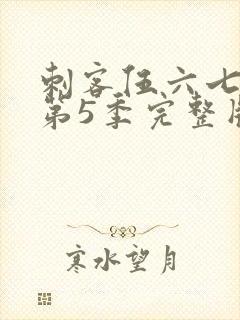 刺客伍六七
第5季完整版
寒水望月